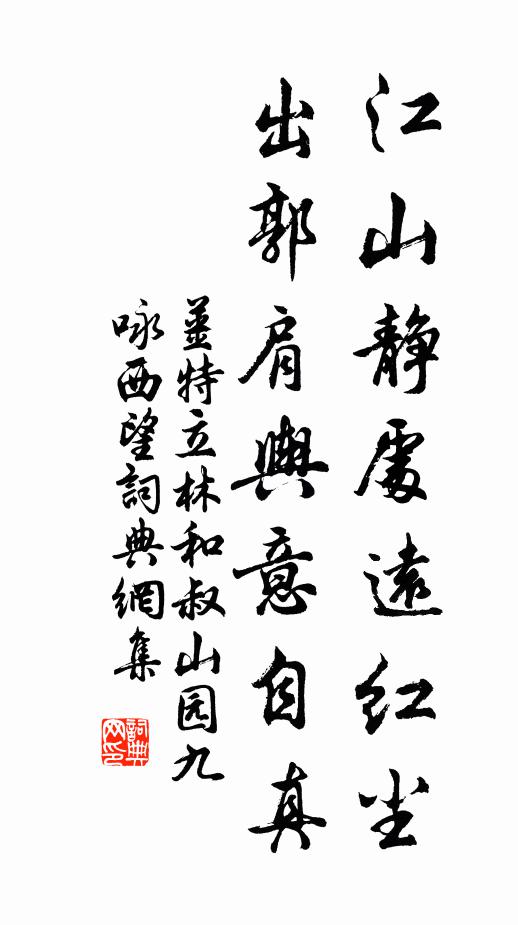 江山靜處遠紅尘
出郭肩輿意自真
姜特立林和叔山园九
咏西望詞典網集
詞典网印